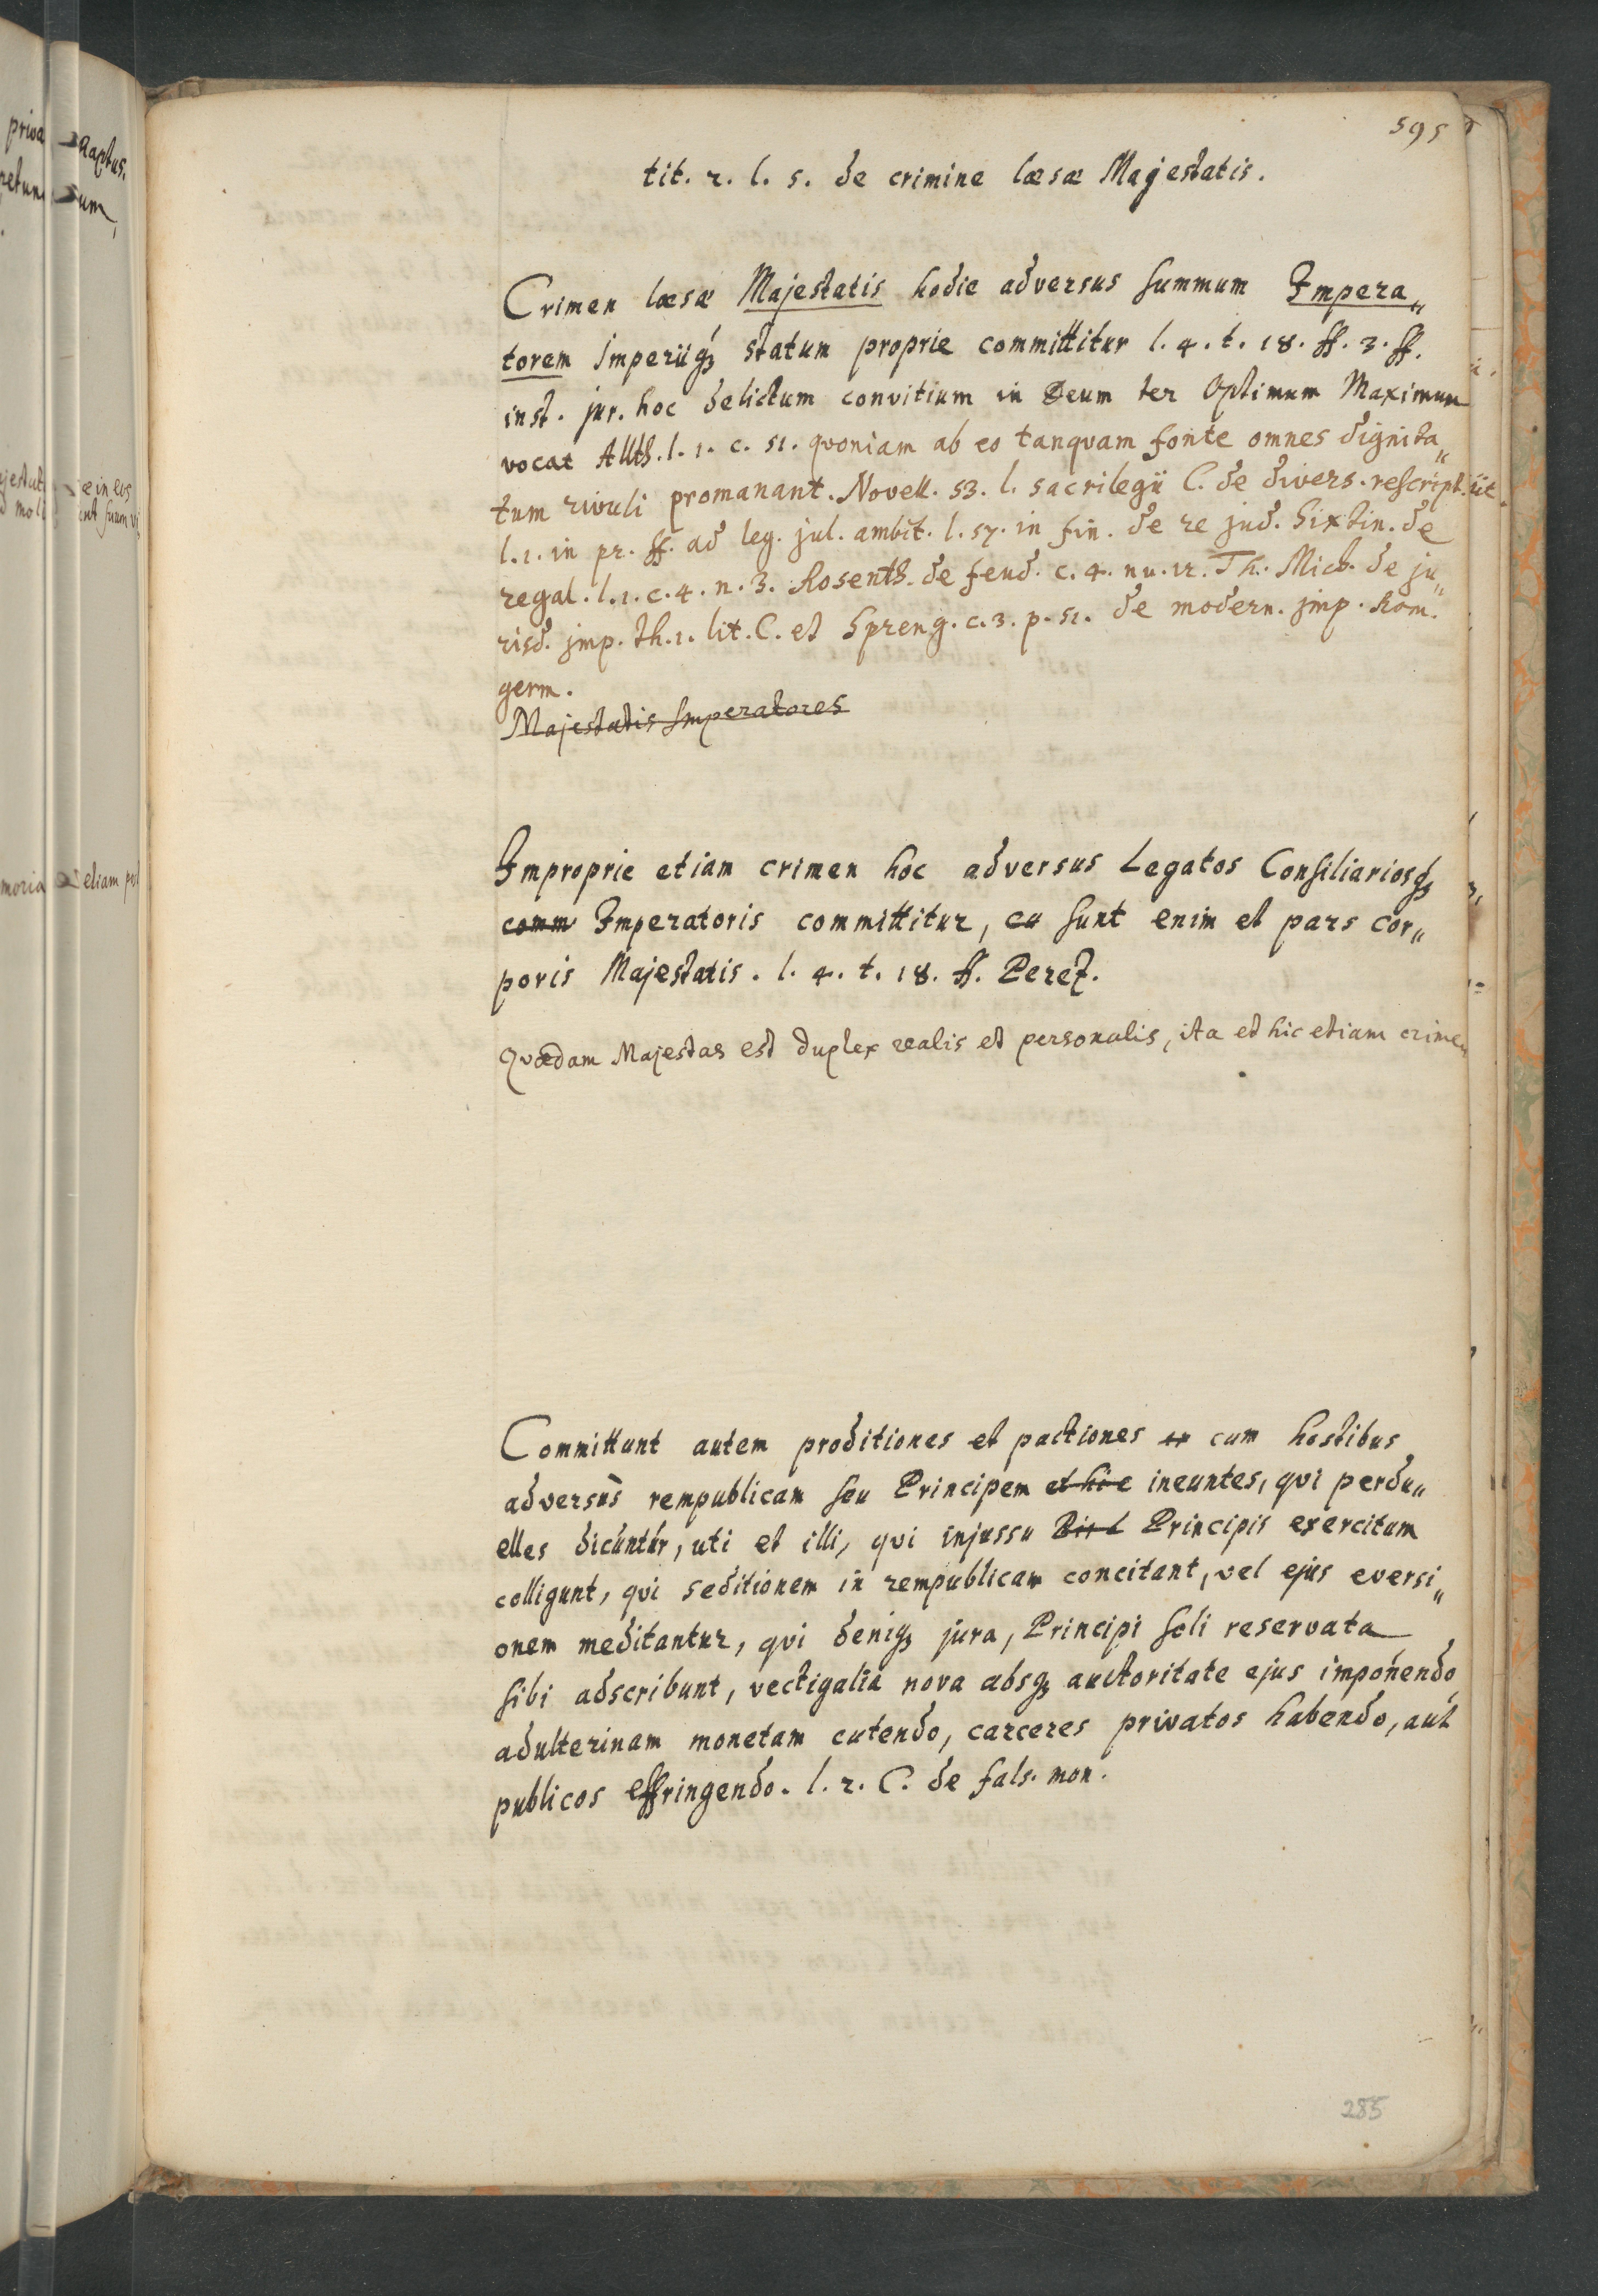 595
tit. 2. l. 5. de crimine læsæ Majestatis.
Crimen læsæ Majestatis hodie adversus summum Impera„
torem Imperiiqȝ statum proprie committitur l. 4. t. 18. ff. 3. ff.
inst. jur. hoc delictum convitium in Deum ter Optimum Maximum
vocat Alth. l. 1. c. 51. quoniam ab eo tanquam fonte omnes dignita„
tum rivuli promanant. Novell. 53. l. sacrilegii C. de divers. rescript. üt.
l. 1. in pr. ff. ad leg. jul. ambit. l. 57. in fin. de re jud. Sixtin. de
regal. l. 1. c. 4. n. 3. Rosenth. de feud. c. 4. nu. 12. Th. Mich. de ju„
risd. jmp. th. 1. lit. C. et Spreng. c. 3. p. 51. de modern. jmp. Rom.
germ.
Majestatis Imperatores
Improprie etiam crimen hoc adversus Legatos Consiliariosqȝ
comm Imperatoris committitur, cu sunt enim et pars cor„
poris Majestatis. l. 4. t. 18. ff. Perez.
Quædam Majestas est duplex realis et personalis, ita et hic etiam crimen
Committunt autem proditiones et pactiones er cum hostibus
adversùs rempublicam seu Principem et hic ineuntes, qvi perdu„
elles dicuntur, uti et illi, qvi injussu Principis exercitum
colligunt, qvi seditionem in rempublicam concitant, vel ejus eversi„
onem meditantur, qvi deniqȝ jura, Principi soli reservata
sibi adscribunt, vectigalia nova absqȝ auctoritate ejus imponendo
adulterinam monetam cutendo, carceres privatos habendo, aut
publicos effringendo. l. 2. C. de fals. mon.
285